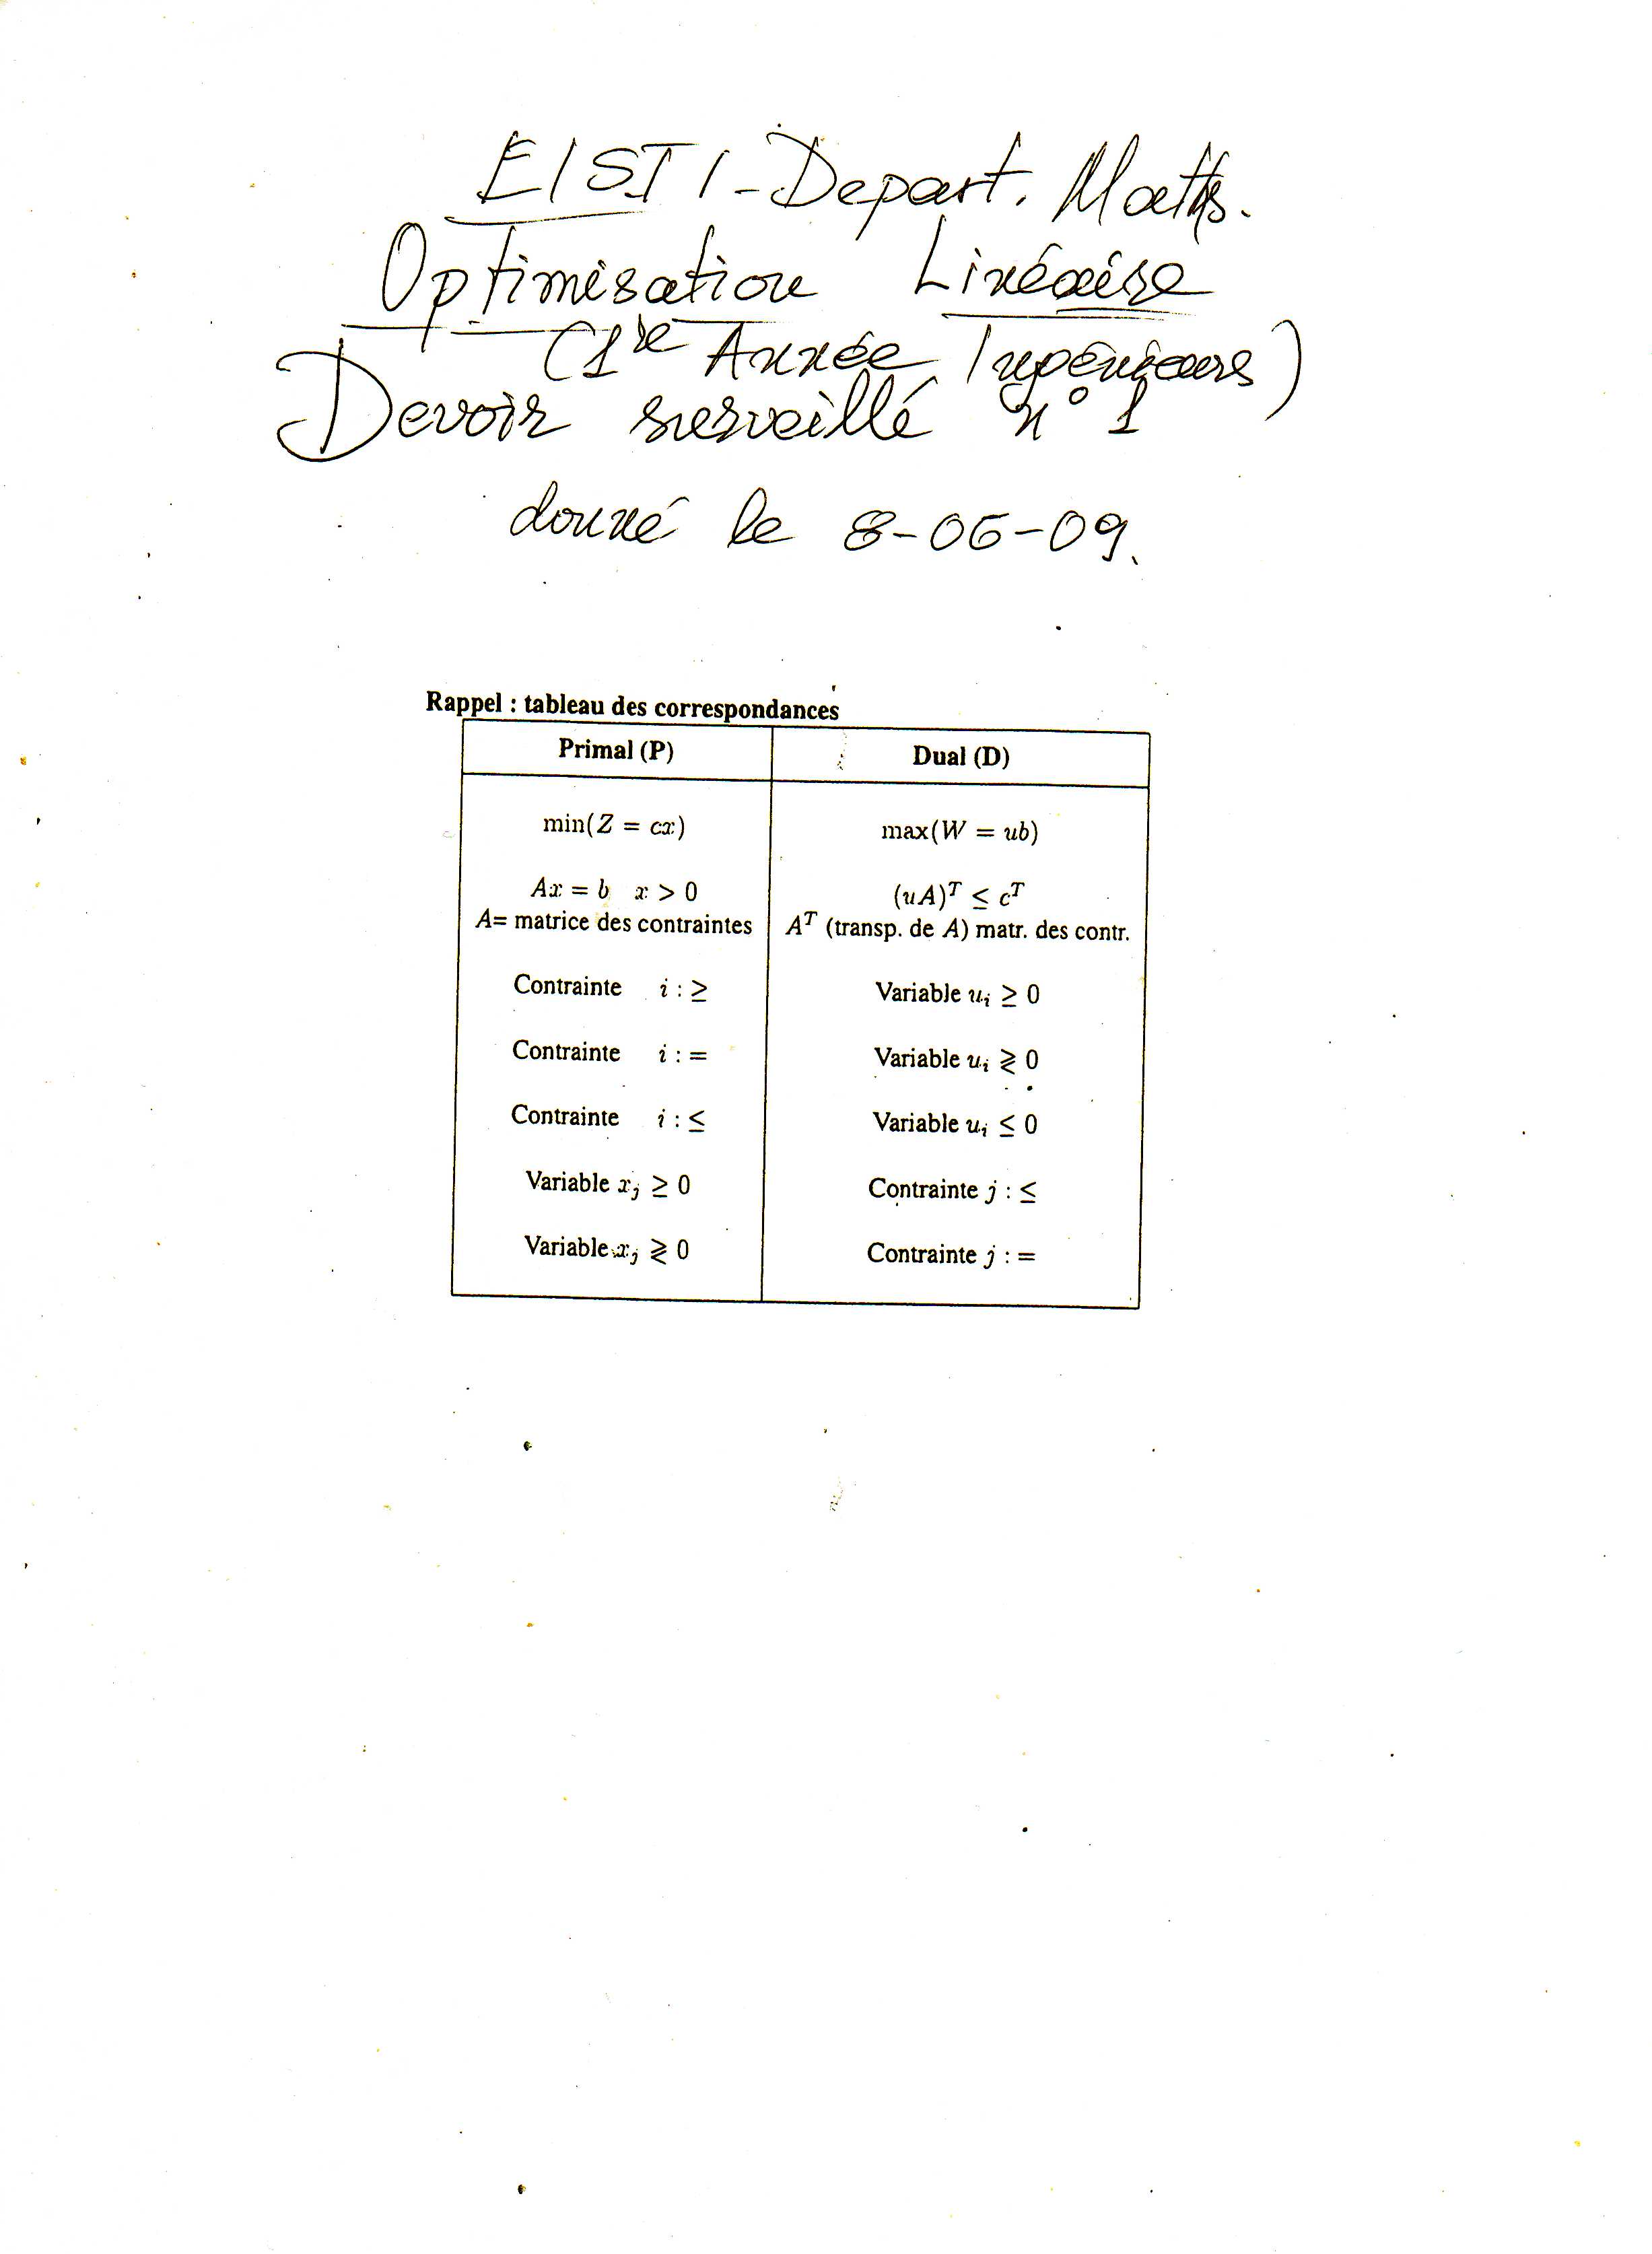 EISTI - Depart. Maths.
Optimisation Linéaire
(1re Année Ingénieurs)
Devoir surveillé n° 1
donné le 8-06-09.
Rappel : tableau des correspondances
Primal (P) Dual (D)
min(Z = cx) max(W = ub)
Ax = b x > 0 (uA)^T ≤ c^T
A= matrice des contraintes A^T (transp. de A) matr. des contr.
Contrainte i : ≥ Variable u_i ≥ 0
Contrainte i : = Variable u_i ≷ 0
Contrainte i : ≤ Variable u_i ≤ 0
Variable x_j ≥ 0 Contrainte j : ≤
Variable x_j ≷ 0 Contrainte j : =